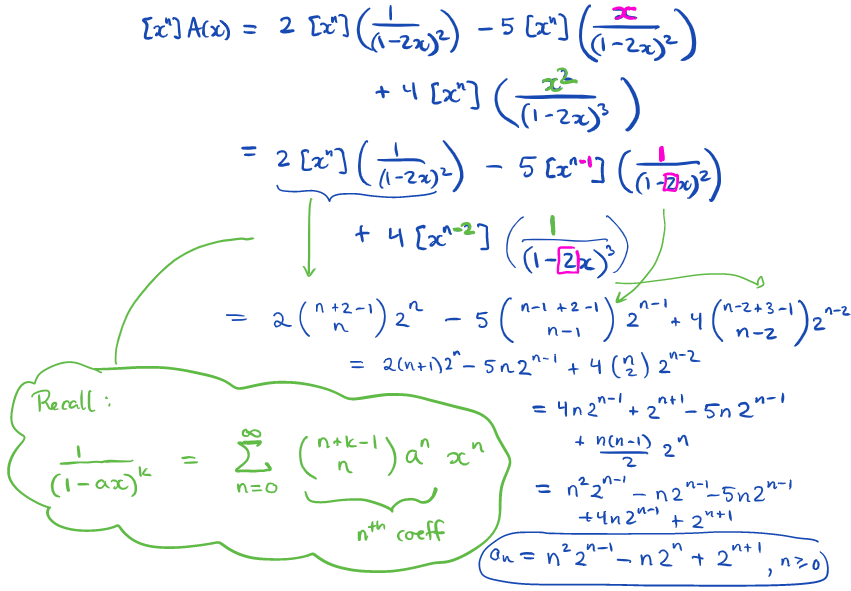 [xⁿ] A(x) = 2 [xⁿ] (1/(1-2x)²) - 5 [xⁿ] (x/(1-2x)²)
+ 4 [xⁿ] (x²/(1-2x)³)
= 2 [xⁿ] (1/(1-2x)²) - 5 [xⁿ⁻¹] (1/(1-2x)²)
+ 4 [xⁿ⁻²] (1/(1-2x)³)
= 2 (n+2-1 n) 2ⁿ - 5 (n-1+2-1 n-1) 2ⁿ⁻¹ + 4 (n-2+3-1 n-2) 2ⁿ⁻²
= 2(n+1)2ⁿ - 5n2ⁿ⁻¹ + 4 (n 2) 2ⁿ⁻²
= 4n2ⁿ⁻¹ + 2ⁿ⁺¹ - 5n2ⁿ⁻¹
+ n(n-1)/2 2ⁿ
= n²2ⁿ⁻¹ - n2ⁿ⁻¹ - 5n2ⁿ⁻¹
+ 4n2ⁿ⁻¹ + 2ⁿ⁺¹
aₙ = n²2ⁿ⁻¹ - n2ⁿ + 2ⁿ⁺¹, n≥0
Recall:
1/(1-ax)ᵏ = ∞ Σ n=0 (n+k-1 n) aⁿ xⁿ
nᵗʰ coeff